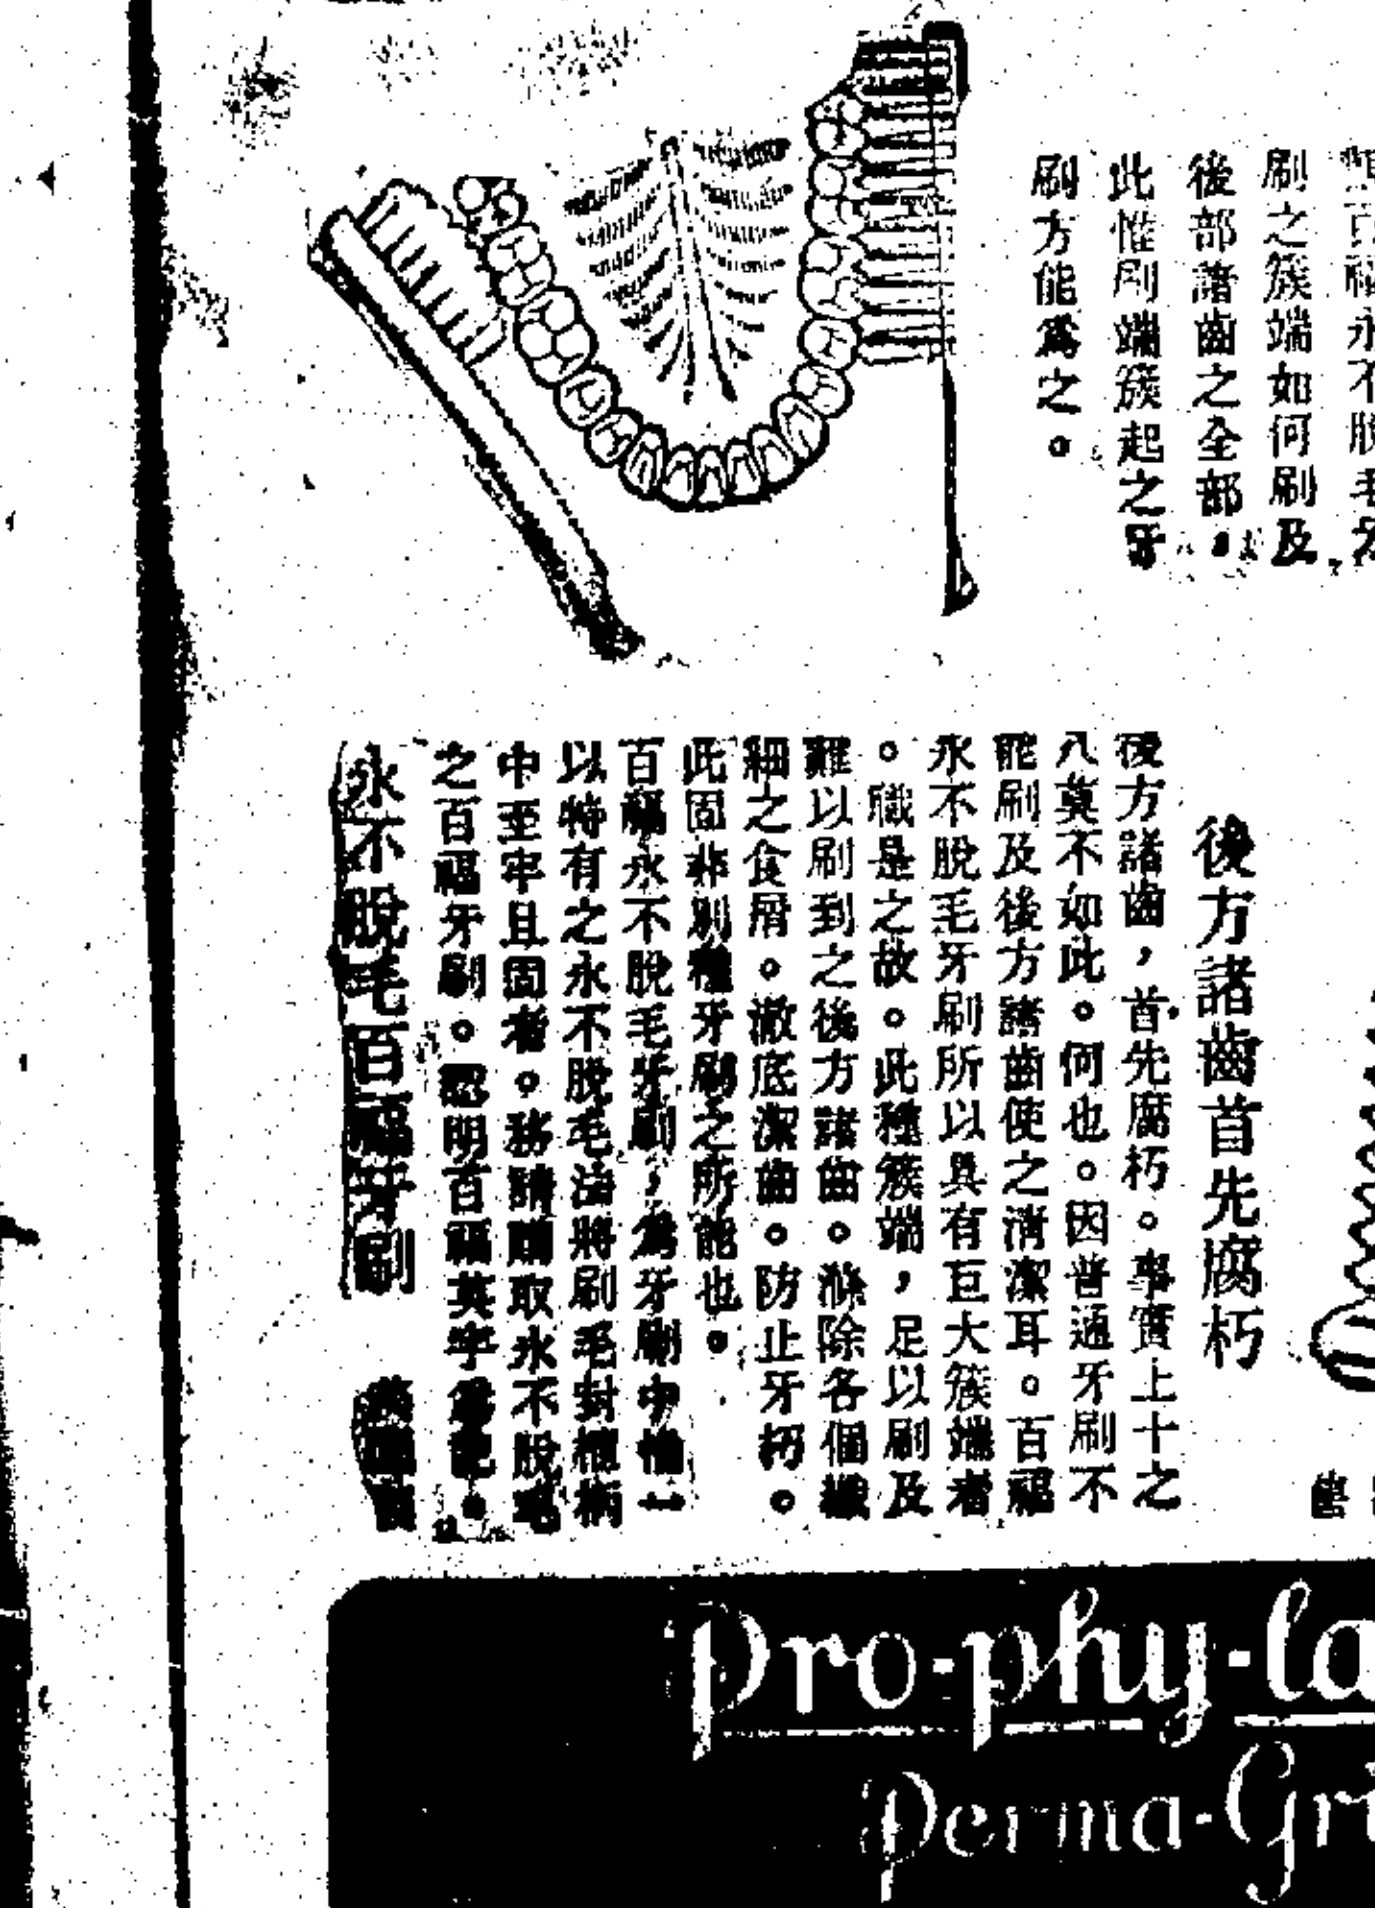 百福永不脫毛牙
刷之簇端如何刷及
後部諸齒之全部。
此惟刷端簇起之牙
刷方能為之。
後方諸齒首先腐朽
後方諸齒，首先腐朽。事實上十之
八莫不如此。何也。因普通牙刷不
能刷及後方諸齒使之清潔耳。百福
永不脫毛牙刷所以具有巨大簇端者
。職是之故。此種簇端，足以刷及
難以刷到之後方諸齒。滌除各個纖
細之食屑。澈底潔齒。防止牙朽。
此固非別種牙刷之所能也。
百福永不脫毛牙刷，為牙刷中惟一
以特有之永不脫毛法將刷毛對植柄
中至牢且固者。務請購取永不脫毛
之百福牙刷。認明百福英字為記。
永不脫毛百福牙刷
售
Pro-phy-la
Perma-Gri